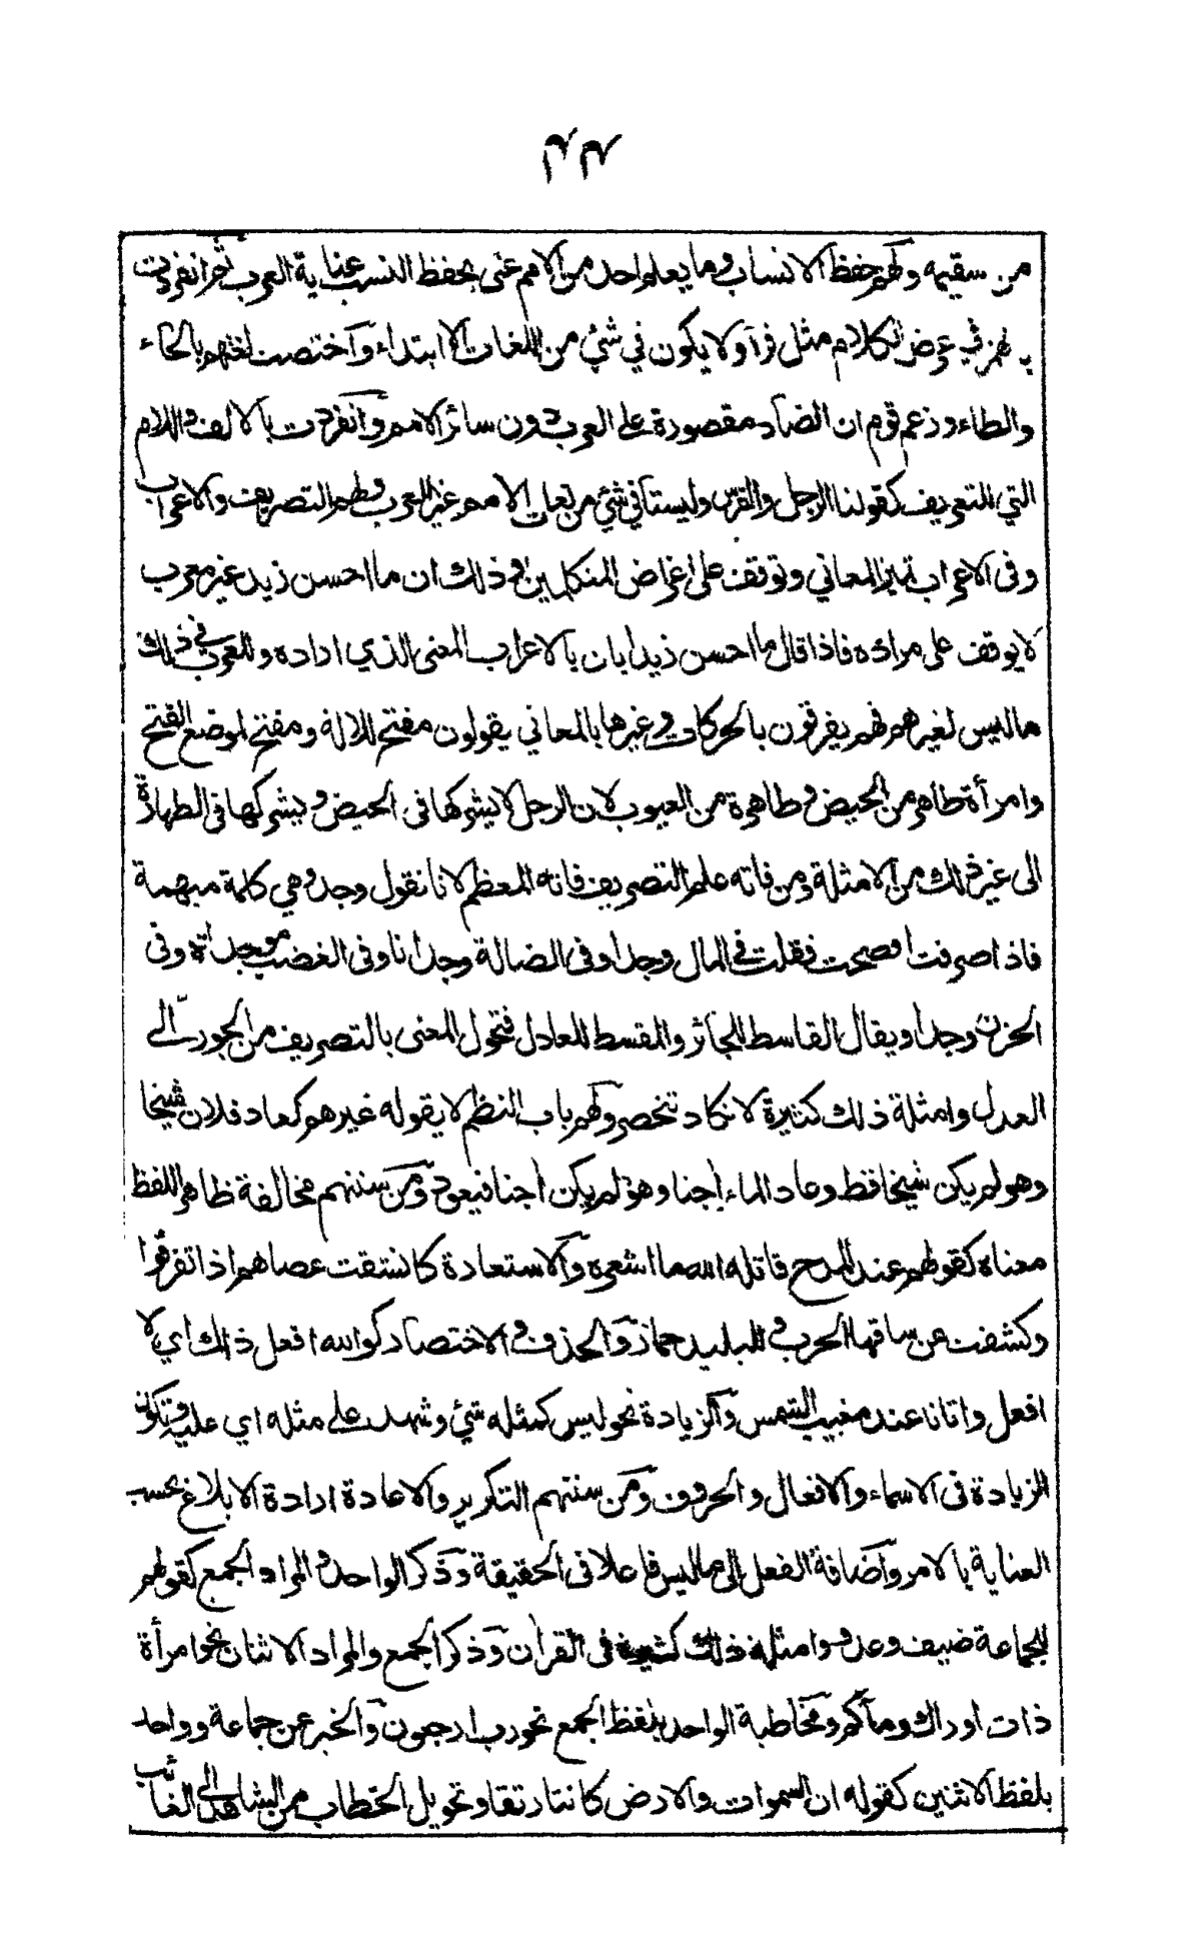 ٢٣
من سقيمه ولهم حفظ الانساب وما يعلم احد من الامم عنى بحفظ النسب عناية العرب ثم انفردت
بهمز في عرض الكلام مثل قرأ ولا يكون في شئ من اللغات الا ابتداء واختصت لغتهم بالحاء
والطاء وزعم قوم ان الضاد مقصورة على العرب دون سائر الامم وانفردت بالالف واللام
التي للتعريف كقولنا الرجل والفرس وليستا في شئ من لغات الامم غير العرب ولهم التصريف والاعراب
وفى الاعراب تميز المعاني وتوقف على اغراض المتكلمين وذلك ان ما احسن زيد غير معرب
لا يوقف على مراده فاذا قال ما احسن زيدا بان بالاعراب المعنى الذي اراده وللعرب في ذلك
ما ليس لغيرهم فهم يفرقون بالحركات وغيرها بالمعاني يقولون مفتح للالة ومفتح لموضع الفتح
وامرأة طاهر من الحيض وطاهرة من العيوب لان الرجل لا يشركها فى الحيض ويشركها فى الطهارة
الى غير ذلك من الامثلة ومن فاته علم التصريف فاته المعظم لانا نقول وجد وهي كلمة مبهمة
فاذا صرفت افصحت فقلت في المال وجدا وفى الضالة وجدانا وفى الغضب موجدة وفى
الحزن وجدا ويقال القاسط للجائر والمقسط للعادل فتحول المعنى بالتصريف من الجور الى
العدل وامثلة ذلك كثيرة لا تكاد تنحصر ولهم باب النظم لا يقوله غيرهم كعاد فلان شيخا
وهو لم يكن شيخا قط وعاد الماء اجنا وهو لم يكن اجنا فيعود ومن سننهم مخالفة ظاهر اللفظ
معناه كقولهم عند المدح قاتله الله ما اشعره والاستعارة كانشقت عصاهم اذا تفرقوا
وكشفت عن ساقها الحرب وللبليد حمار والحذف والاختصار كوالله افعل ذلك اي لا
افعل واتانا عند مغيب الشمس والزيادة نحو ليس كمثله شئ وشهد على مثله اي عليه وتكون
الزيادة فى الاسماء والافعال والحروف ومن سننهم التكرير والاعادة ارادة الابلاغ بحسب
العناية بالامر واضافة الفعل الى ما ليس فاعلا فى الحقيقة وذكر الواحد والمراد الجمع كقولهم
للجماعة ضيف وعدو وامثلة ذلك كثيرة فى القران وذكر الجمع والمراد الاثنان نحو امرأة
ذات اوراك ومآكم ومخاطبة الواحد بلفظ الجمع نحو رب ارجعون والخبر عن جماعة وواحد
بلفظ الاثنين كقوله ان السموات والارض كانتا رتقا وتحويل الخطاب من الشاهد الى الغائب